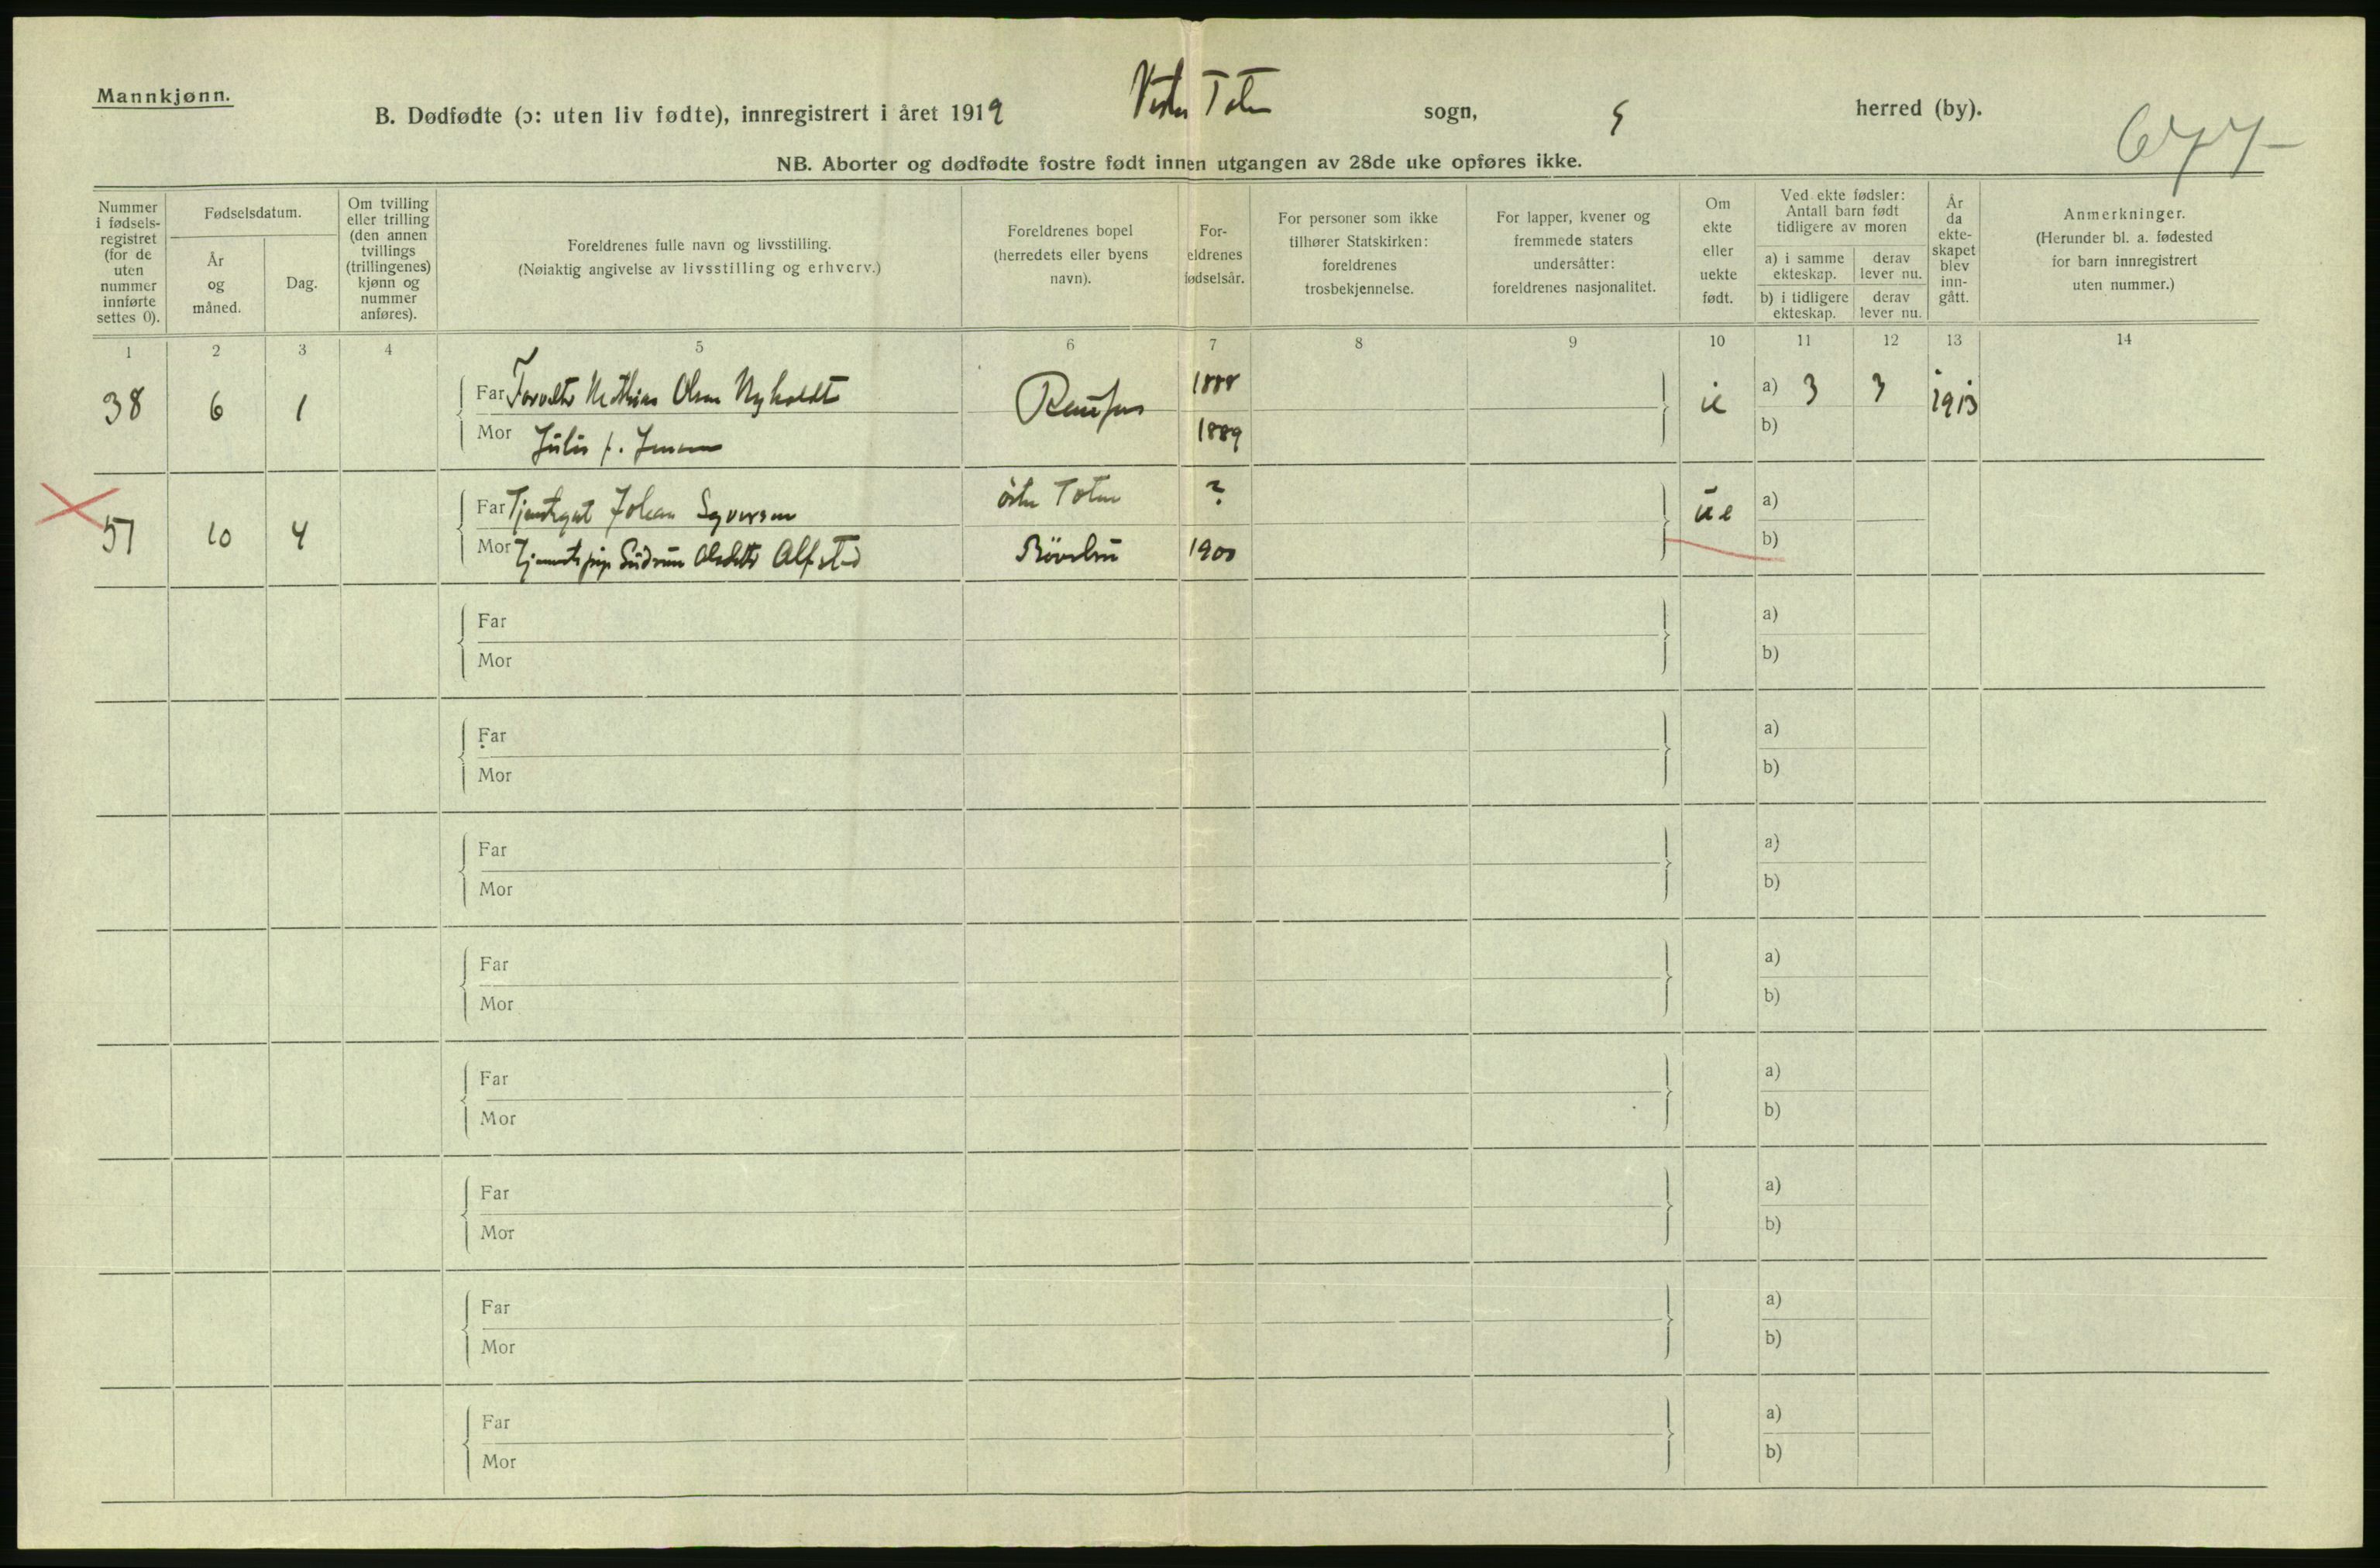 Mannkjønn.
B. Dødfødte (ɔ: uten liv fødte), innregistrert i året 1919 Vestre Toten sogn, herred (by).
677
NB. Aborter og dødfødte fostre født innen utgangen av 28de uke opføres ikke.
Nummer i fødsels-registret (for de uten nummer innførte settes 0).
Fødselsdatum.
År og måned.
Dag.
Om tvilling eller trilling (den annen tvillings (trillingenes) kjønn og nummer anføres).
Foreldrenes fulle navn og livsstilling.
(Nøiaktig angivelse av livsstilling og erhverv.)
Foreldrenes bopel (herredets eller byens navn).
For-eldrenes fødselsår.
For personer som ikke tilhører Statskirken: foreldrenes trosbekjennelse.
For lapper, kvener og fremmede staters undersåtter: foreldrenes nasjonalitet.
Om ekte eller uekte født.
Ved ekte fødsler: Antall barn født tidligere av moren
a) i samme ekteskap.
derav lever nu.
b) i tidligere ekteskap.
derav lever nu.
År da ekte-skapet blev inn-gått.
Anmerkninger.
(Herunder bl. a. fødested for barn innregistrert uten nummer.)
1 2 3 4 5 6 7 8 9 10 11 12 13 14
38 6 1 Far Forvalter Mathias Olsen Nyholdt 1888 a) 3 3 1913
Mor Julie f. Jensen 1889 b)
51 10 4 Far Tjenstegut Johan Syversen østre Toten ? ue a)
Mor Gudrun Olsdatter Alfstad 1900 b)
Far a)
Mor b)
Far a)
Mor b)
Far a)
Mor b)
Far a)
Mor b)
Far a)
Mor b)
Far a)
Mor b)
Far a)
Mor b)
Far a)
Mor b)